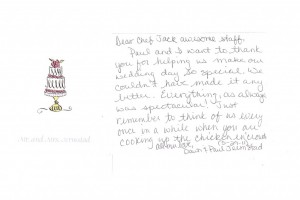 Dear Chef Jack awesome staff,
Paul and I want to thank
you for helping us make our
wedding day so special. We
couldn't have made it any
better. Everything, as always
was spectacular! Just
remember to think of us every
once in a while when you are
cooking up the chicken n'crod
Mr. and Mrs.
Dawn & Paul